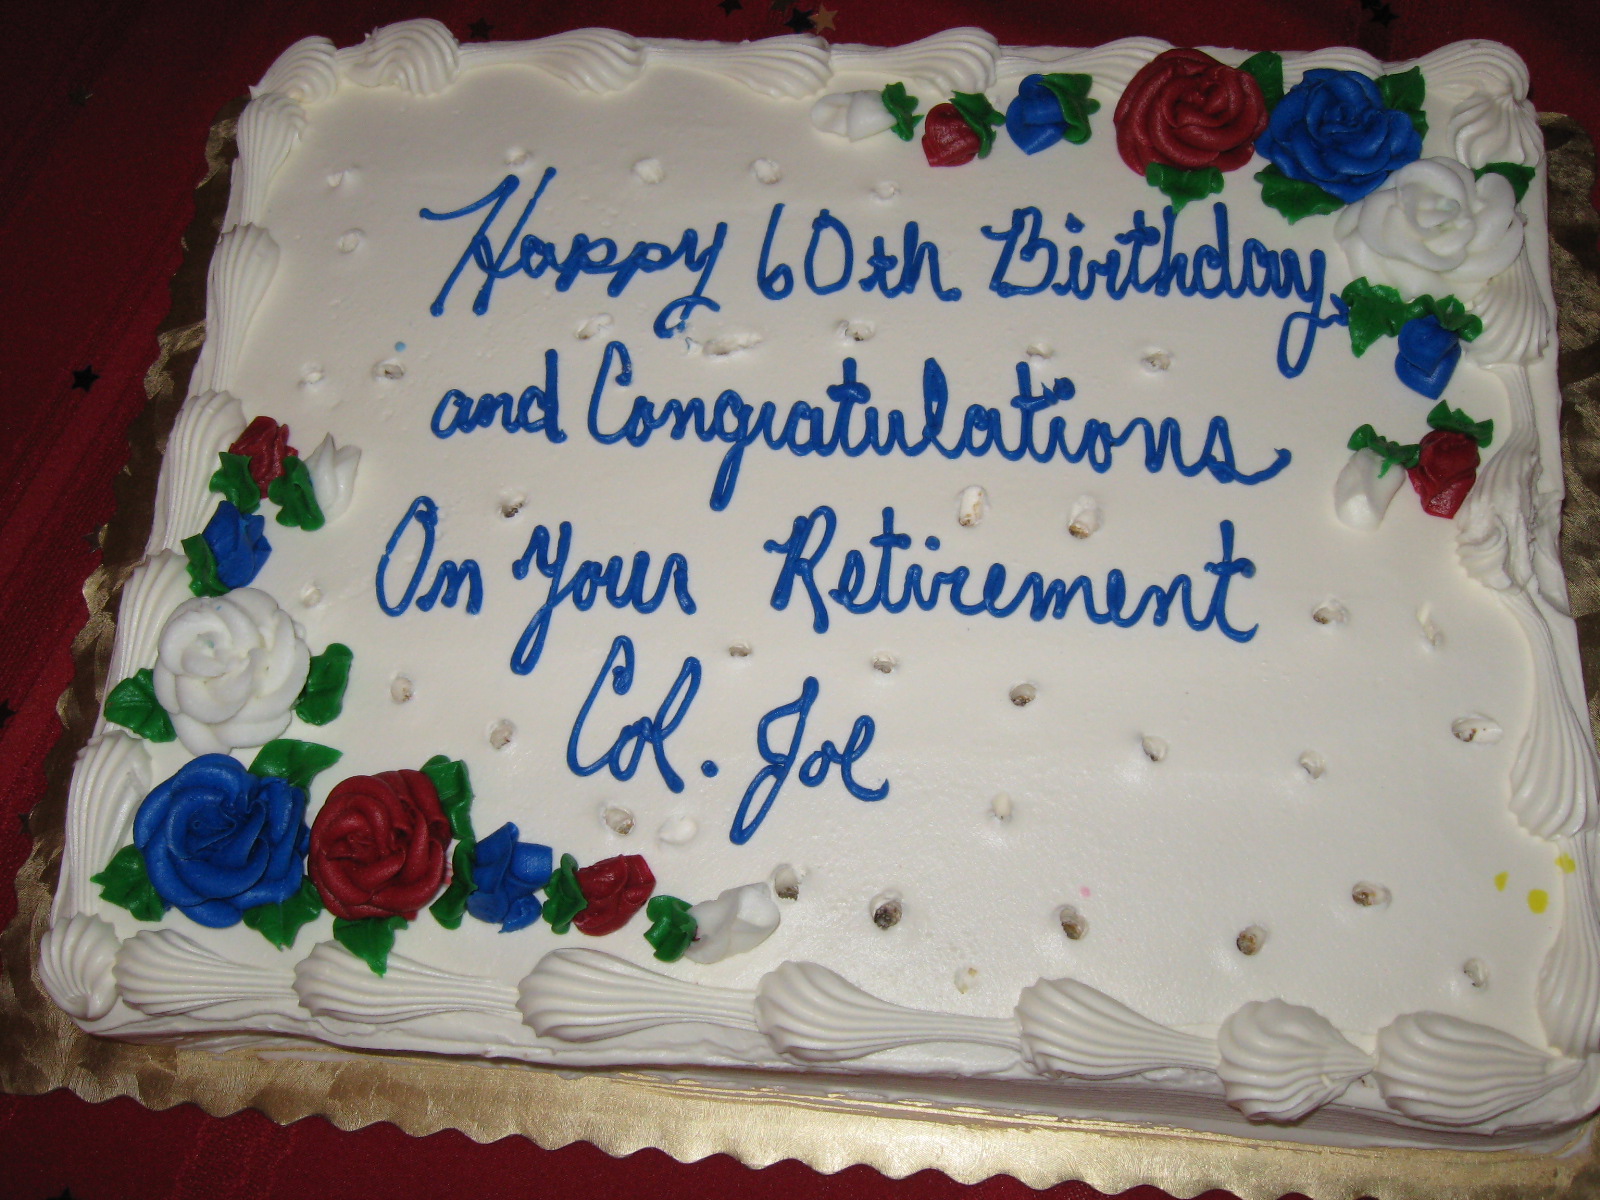 Happy 60th Birthday
and Congratulations
On Your Retirement
Col. Joe